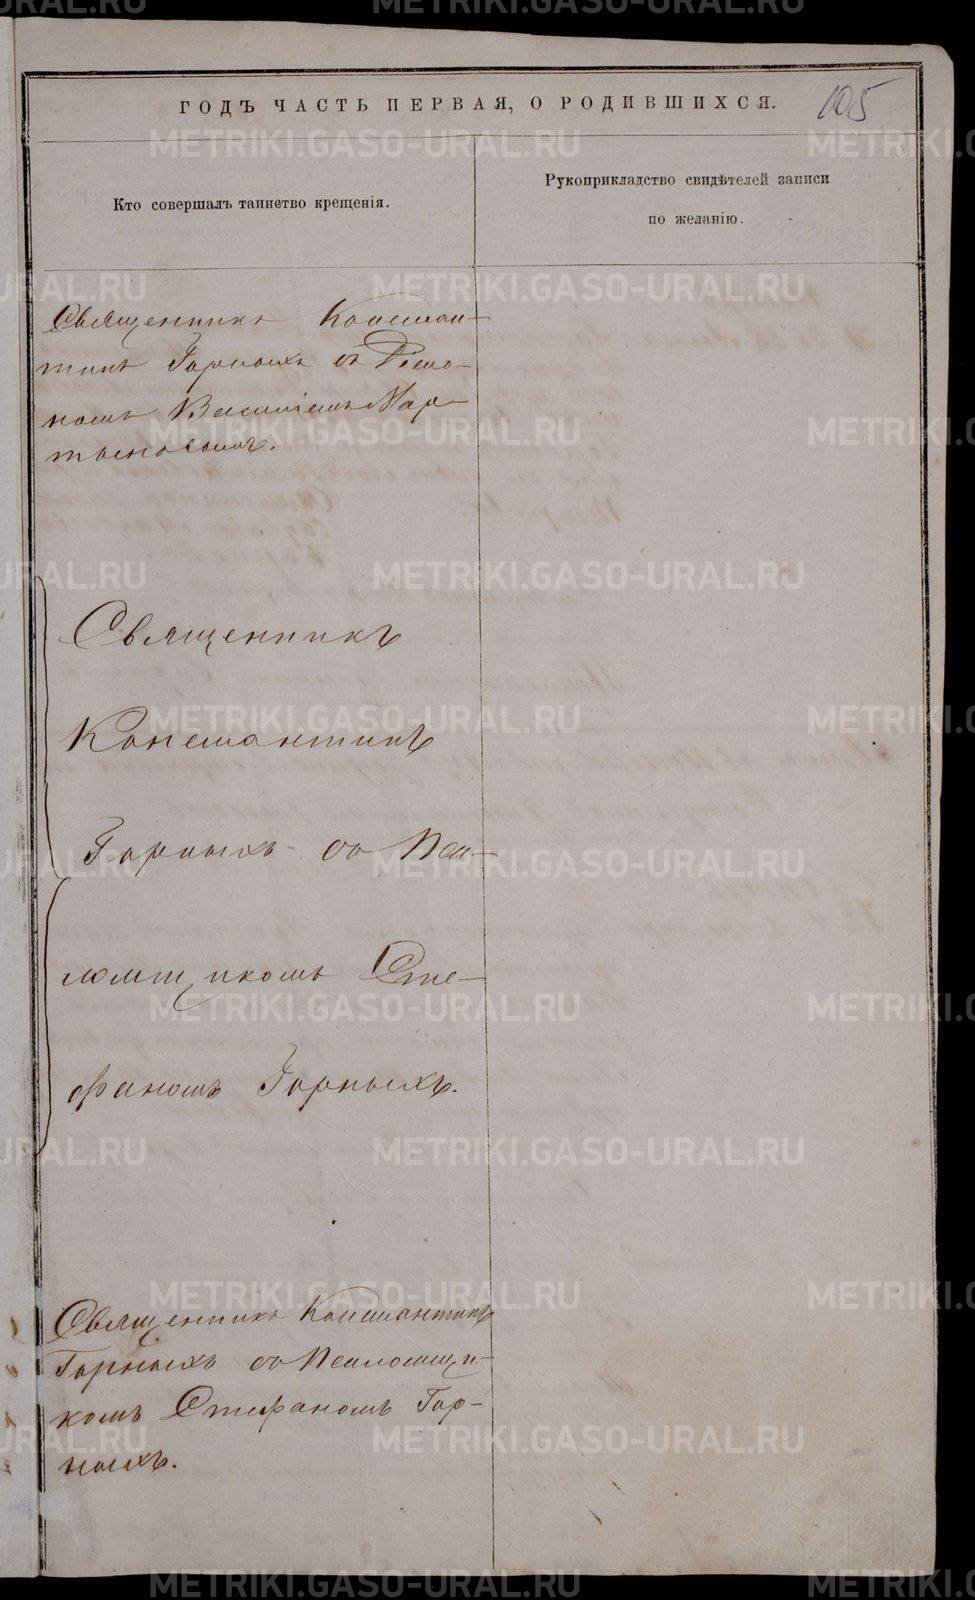 ГОДЪ ЧАСТЬ ПЕРВАЯ, О РОДИВШИХСЯ.
105
Кто совершалъ таинство крещенія.
Рукоприкладство свидѣтелей записи
по желанію.
Священникъ Констан-
тинъ Горныхъ съ Діако-
номъ Василіемъ Мар-
тыновымъ.
Священникъ
Константинъ
Горныхъ съ Пса-
ломщикомъ Сте-
фаномъ Горныхъ.
Священникъ Константинъ
Горныхъ съ Псаломщи-
комъ Стефаномъ Гор-
ныхъ.
METRIKI.GASO-URAL.RU